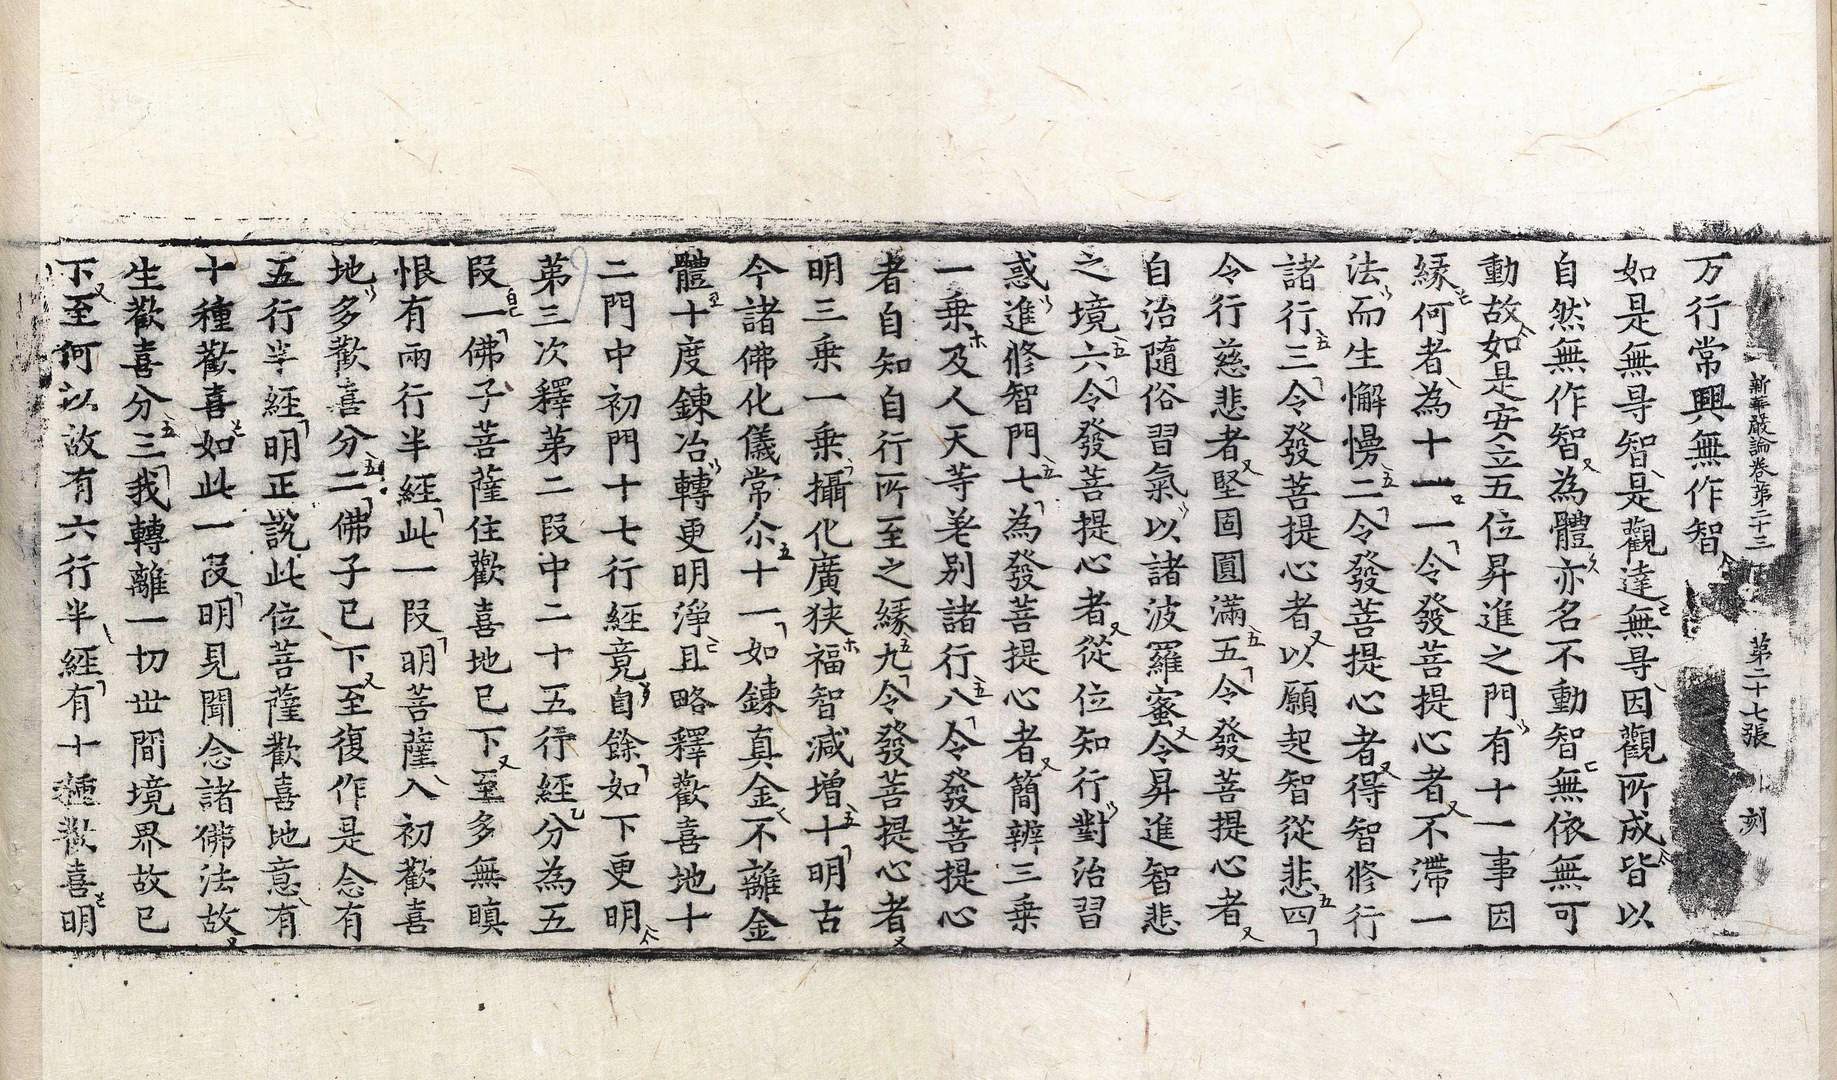 新華嚴論卷第二十三 第二十七張 刻
万行常興無作智
如是無㝵智是觀達無㝵因觀所成皆以
自然無作智為體亦名不動智無依無可
動故如是安立五位昇進之門有十一事因
緣何者為十一一令發菩提心者不滯一
法而生懈慢二令發菩提心者得智修行
諸行三令發菩提心者以願起智從悲四
令行慈悲者堅固圓滿五令發菩提心者
自治隨俗習氣以諸波羅蜜令昇進智悲
之境六令發菩提心者從位知行對治習
惑進修智門七為發菩提心者簡辨三乗
一乗及人天等差別諸行八令發菩提心
者自知自行所至之緣九令發菩提心者
明三乗一乗攝化廣狹福智減增十明古
今諸佛化儀常尒十一如鍊真金不離金
體十度鍊冶轉更明淨且略釋歡喜地十
二門中初門十七行經竟自餘如下更明
第三次釋第二段中二十五行經分為五
段一佛子菩薩住歡喜地已下至多無瞋
恨有兩行半經此一段明菩薩入初歡喜
地多歡喜分二佛子已下至復作是念有
五行半經明正說此位菩薩歡喜地意有
十種歡喜如此一段明見聞念諸佛法故
生歡喜分三我轉離一切世間境界故已
下至何以故有六行半經有十種歡喜明